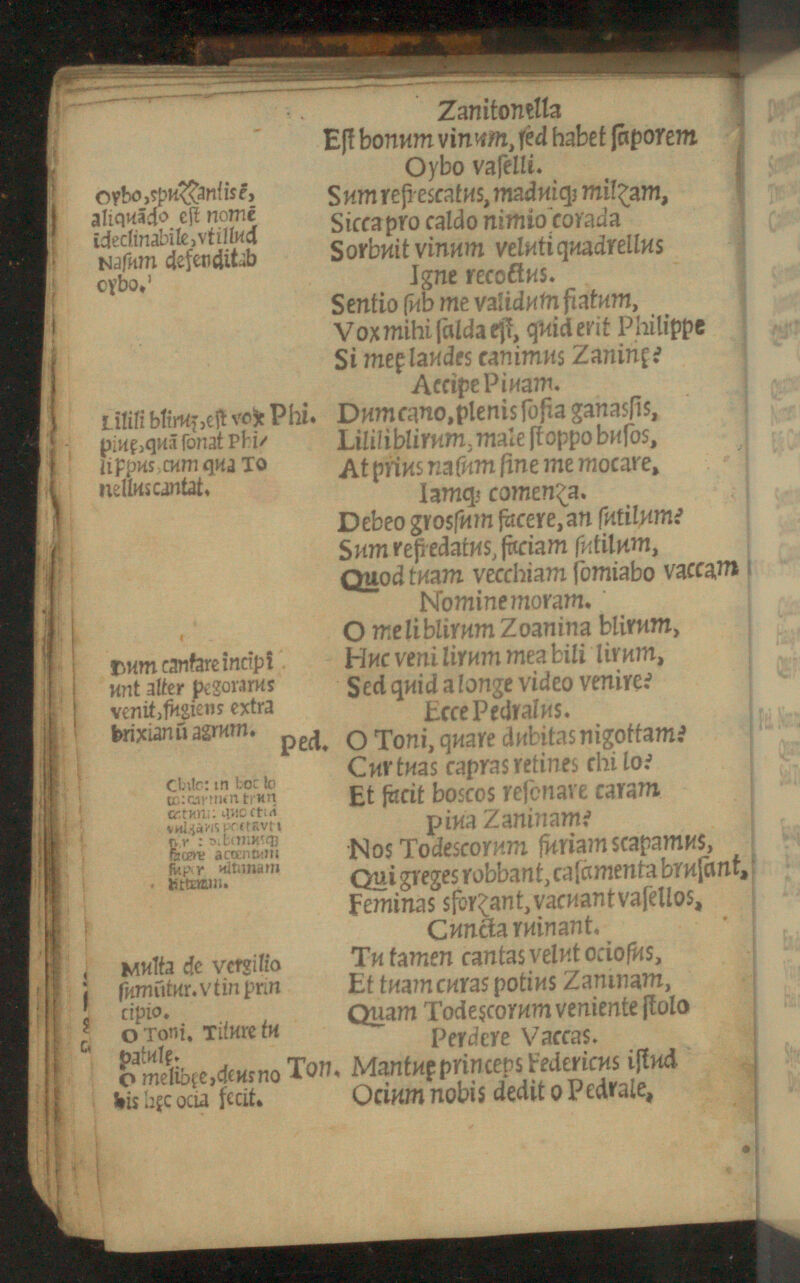 Zanitonella
Est bonum vinum, sed habet saporem
Oybo vaselli.
Sum refrescatus, maduiq; milzam,
Sicca pro caldo nimio corada
Sorbuit vinum veluti quadrellus
Igne recoctus.
Sentio sub me validum fiatum,
Vox mihi salda est, quid erit Philippe
Si meę laudes canimus Zaninę?
Accipe Piuam.
Phi. Dum cano, plenis sofia ganassis,
Lilili blirum, male stoppo busos,
At prius nasum sine me mocare,
Iamq; comenza.
Debeo grossum facere, an sutilum?
Sum refredatus, faciam sutilum,
Quod tuam vecchiam somiabo vaccam
Nomine moram.
O meli blirum Zoanina blirum,
Huc veni lirum mea bili lirum,
Sed quid a longe video venire?
Ecce Pedralus.
ped. O Toni, quare dubitas nigottam?
Cur tuas capras retines chi lo?
Et facit boscos resonare caram
piua Zaninam?
Nos Todescorum furiam scapamus,
Qui greges robbant, casamenta brusant,
Feminas sforzant, vacuant vasellos,
Cuncta ruinant.
Tu tamen cantas velut ociosus,
Et tuam curas potius Zaninam,
Quam Todescorum veniente stolo
Perdere Vaccas.
Ton. Mantuę princeps Federicus istud
Ocium nobis dedit o Pedrale,
Oybo, spuzzantisē,
aliquādo est nomē
īdeclinabile, vt illud
Nasum defenditab
oybo.
Lilili blirum, est vox
piuę, quā sonat Phi/
lippus, cum qua To
nellus cantat.
Dum cantare incipi
unt alter pegorarus
venit, fugiens extra
brixianū agrum.
Chilo: in hoc lo
facere accentum
super ultimam
litteram.
Multa de vergilio
sumūtur. vt in prin
cipio.
O Toni. Titure tu
patulę.
O melibęe, deus no
bis hęc ocia fecit.